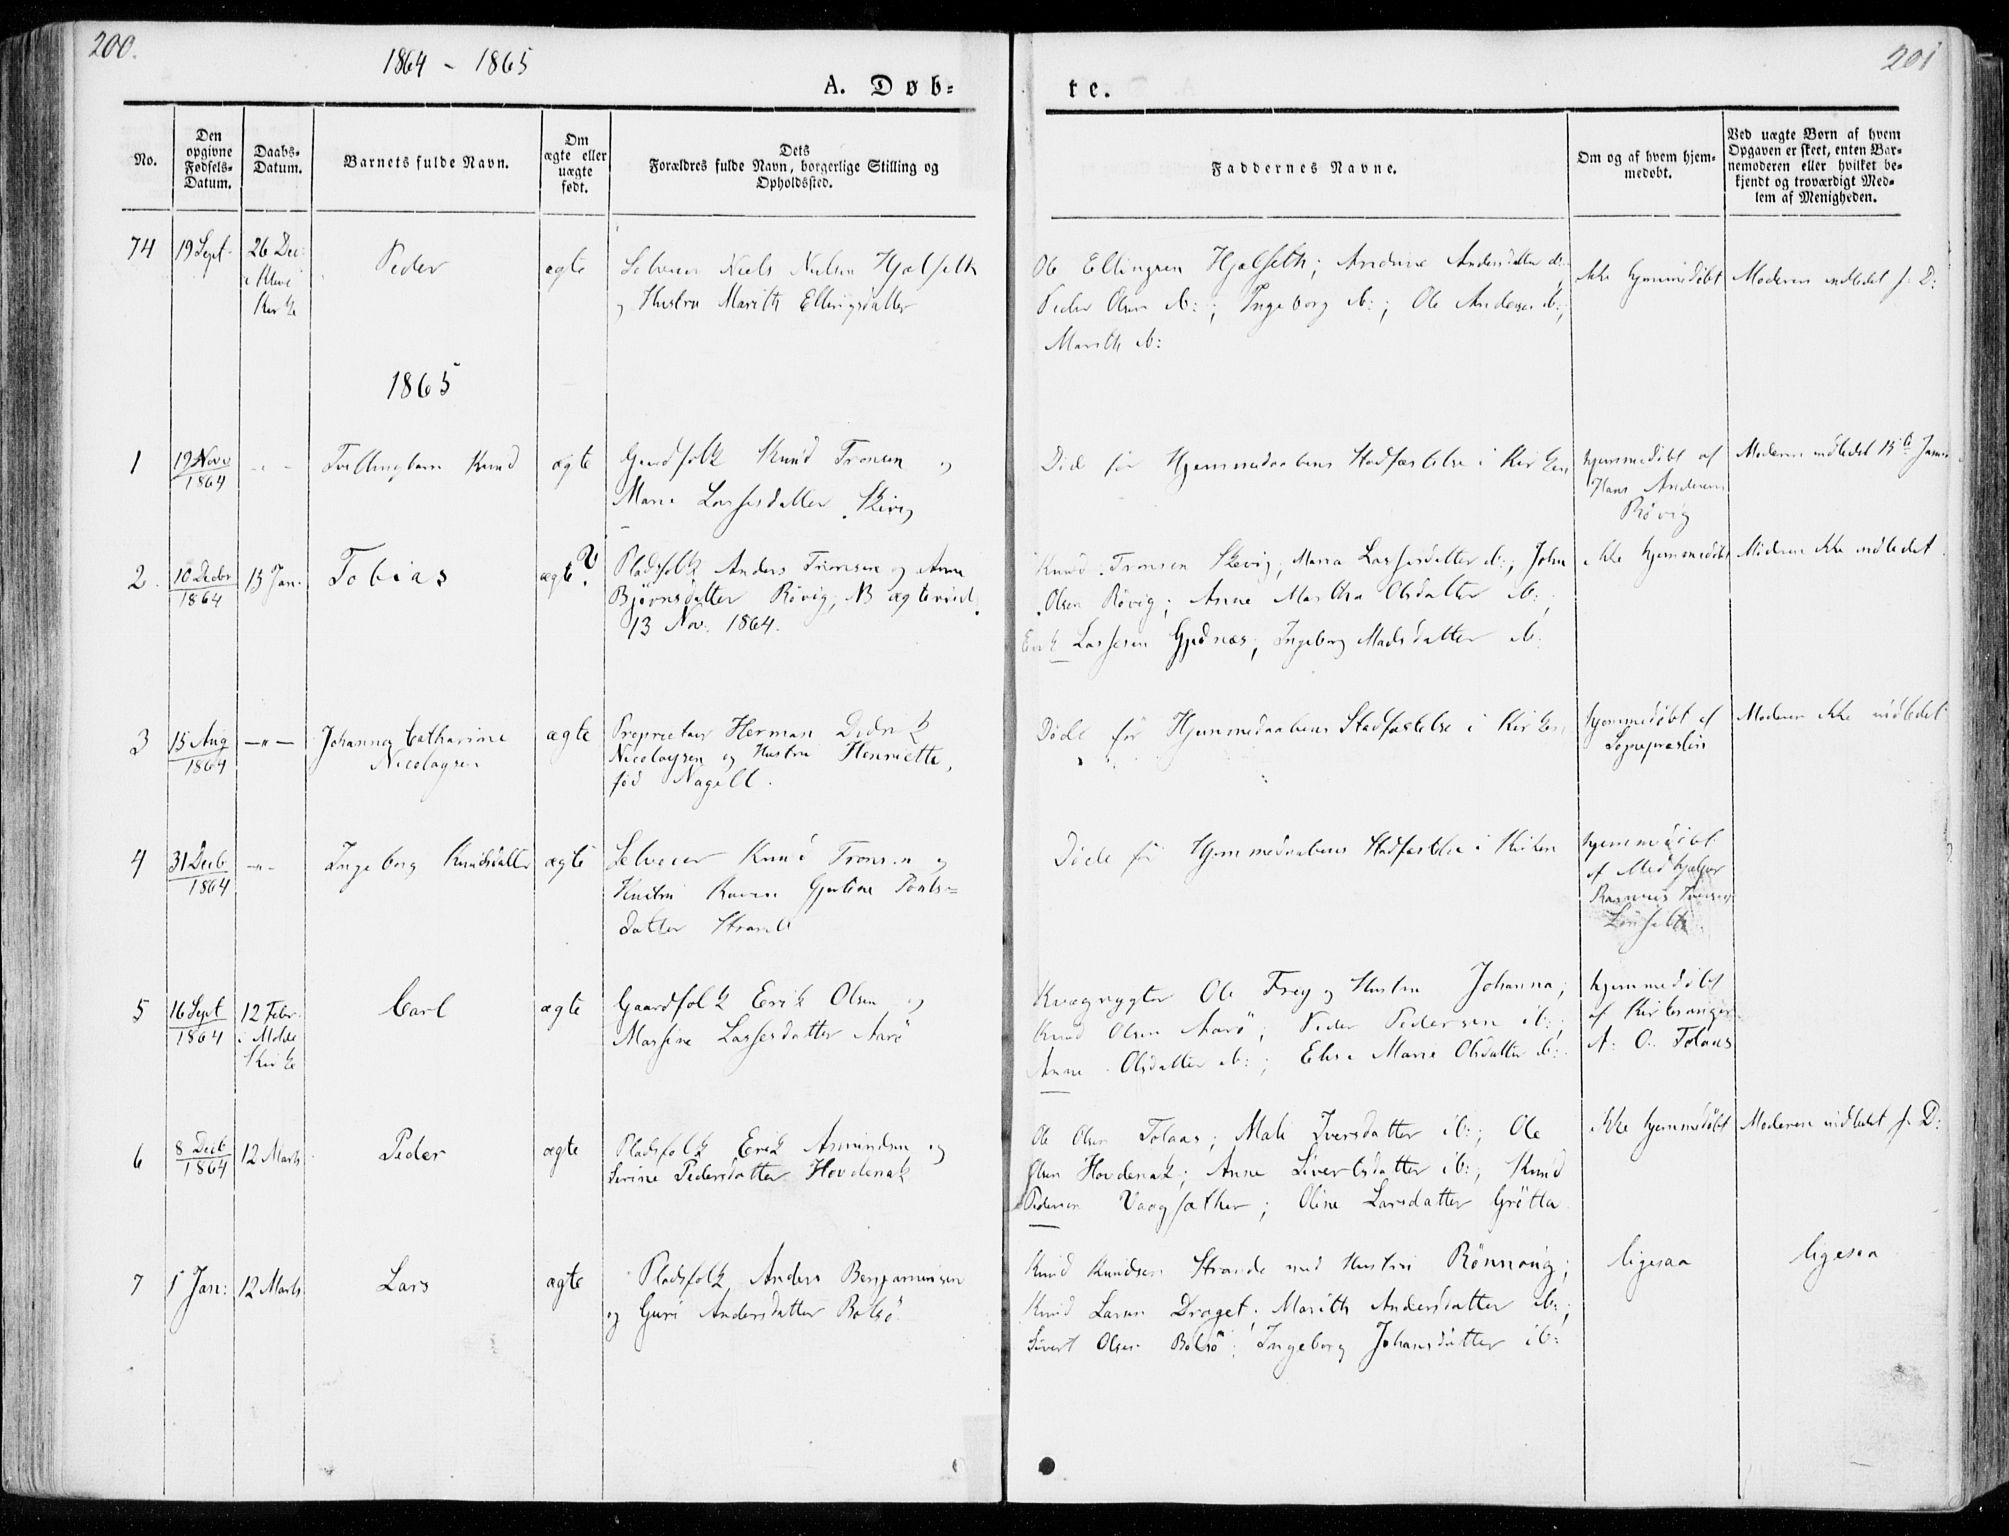 200.
1864 - 1865
A. Døb=
te.
201
No.
Den opgivne Fødsels-Datum.
Daabs-Datum.
Barnets fulde Navn.
Om ægte eller uægte født.
Dets Forældres fulde Navn, borgerlige Stilling og Opholdssted.
Faddernes Navne.
Om og af hvem hjem-medøbt.
Ved uægte Børn af hvem Opgaven er skeet, enten Bar-nemoderen eller hvilket be-kjendt og troværdigt Med-lem af Menigheden.
74
19 Sept.
26 Dec:
i Kleve
Kirke
Peder
ægte
Selveier Niels Nielsen Hjelseth
og Hustru Marith Ellingsdatter
Ole Ellingsen Hjelseth; Andrine Andersdatter ib:
Peder Olsen ib:; Ingeborg ib:; Ole Andersen ib:;
Marith ib:
ikke hjemmedøbt
Moderen indledet s. D:
1865
1
19 Novr
1864
- " -
Tvillingbarn Knud
ægte
Gaardfolk Knud Tronsen og
Marie Lassesdatter Skevig
Død før Hjemmedaabens Stadfæstelse i Kirken
hjemmedøbt af
Hans Andersen
Røvig
Moderen indledet 15de Januar
2.
10 Decbr
1864
15 Jan.
Tobias
ægte ?
Pladsfolk Anders Tronsen og Anne
Bjørnsdatter Røvig, NB ægteviede
13 Nov. 1864.
Knud Tronsen Skevig; Maria Lassesdatter ib:; John
Olsen Røvig; Anne Martha Olsdatter ib:;
Erik Lassesen Gjednæs; Ingeborg Madsdatter ib.
ikke hjemmedøbt
Moderen ikke indledet.
3
15 Aug
1864
- " -
Johanna Catharine
Nicolaysen
ægte
Proprietær Herman Didrik
Nicolaysen og Hustru Henriette,
fød Nagell.
Døde før Hjemmedaabens Stadfæstelse i Kirken
hjemmedøbt af
Sognepræsten
Moderen ikke indledet
4
31 Decb
1864
- " -
Ingeborg Knudsdatter
ægte
Selveier Knud Tronsen og
Hustru Karen Gjertine Pouls=
datter Strande
Døde før Hjemmedaabens Stadfæstelse i Kirken
hjemmedøbt
af Medhjelper
Rasmus
Lønseth
5
16 Sept
1864
12 Febr.
i Molde
Kirke
Carl
ægte
Gaardfolk Erik Olsen og
Massine Lassesdatter Aarø
Kvægrygter Ole Frey og Hustru Johanna;
Knud Olsen Aarø; Peder Pedersen ib:;
Anne Olsdatter ib:; Elise Marie Olsdatter ib:
hjemmedøbt
af Kirkesanger
A. O. Tolaas
6
8 Decb
1864
12 Marts
Peder
ægte
Pladsfolk Erik Asmundsen og
Serine Pedersdatter Hovdenak
Ole Olsen Tolaas; Mali Iversdatter ib:; Ole
Olsen Hovdenak; Anne Sivertsdatter ib:; Knud
Pedersen Vaagsæther; Oline Larsdatter Grøtta
ikke hjemmedøbt
Moderen indledet s. D:
7
1 Jan:
12 Marts
Lars
ægte
Pladsfolk Anders Benjaminsen
og Guri Andersdatter Bolsø
Knud Knudsen Strande med Hustru Rønnaug;
Knud Larsen Draget; Marith Andersdatter ib:;
Sivert Olsen Bolsø; Ingeborg Johansdatter ib:
ligesaa
ligesaa